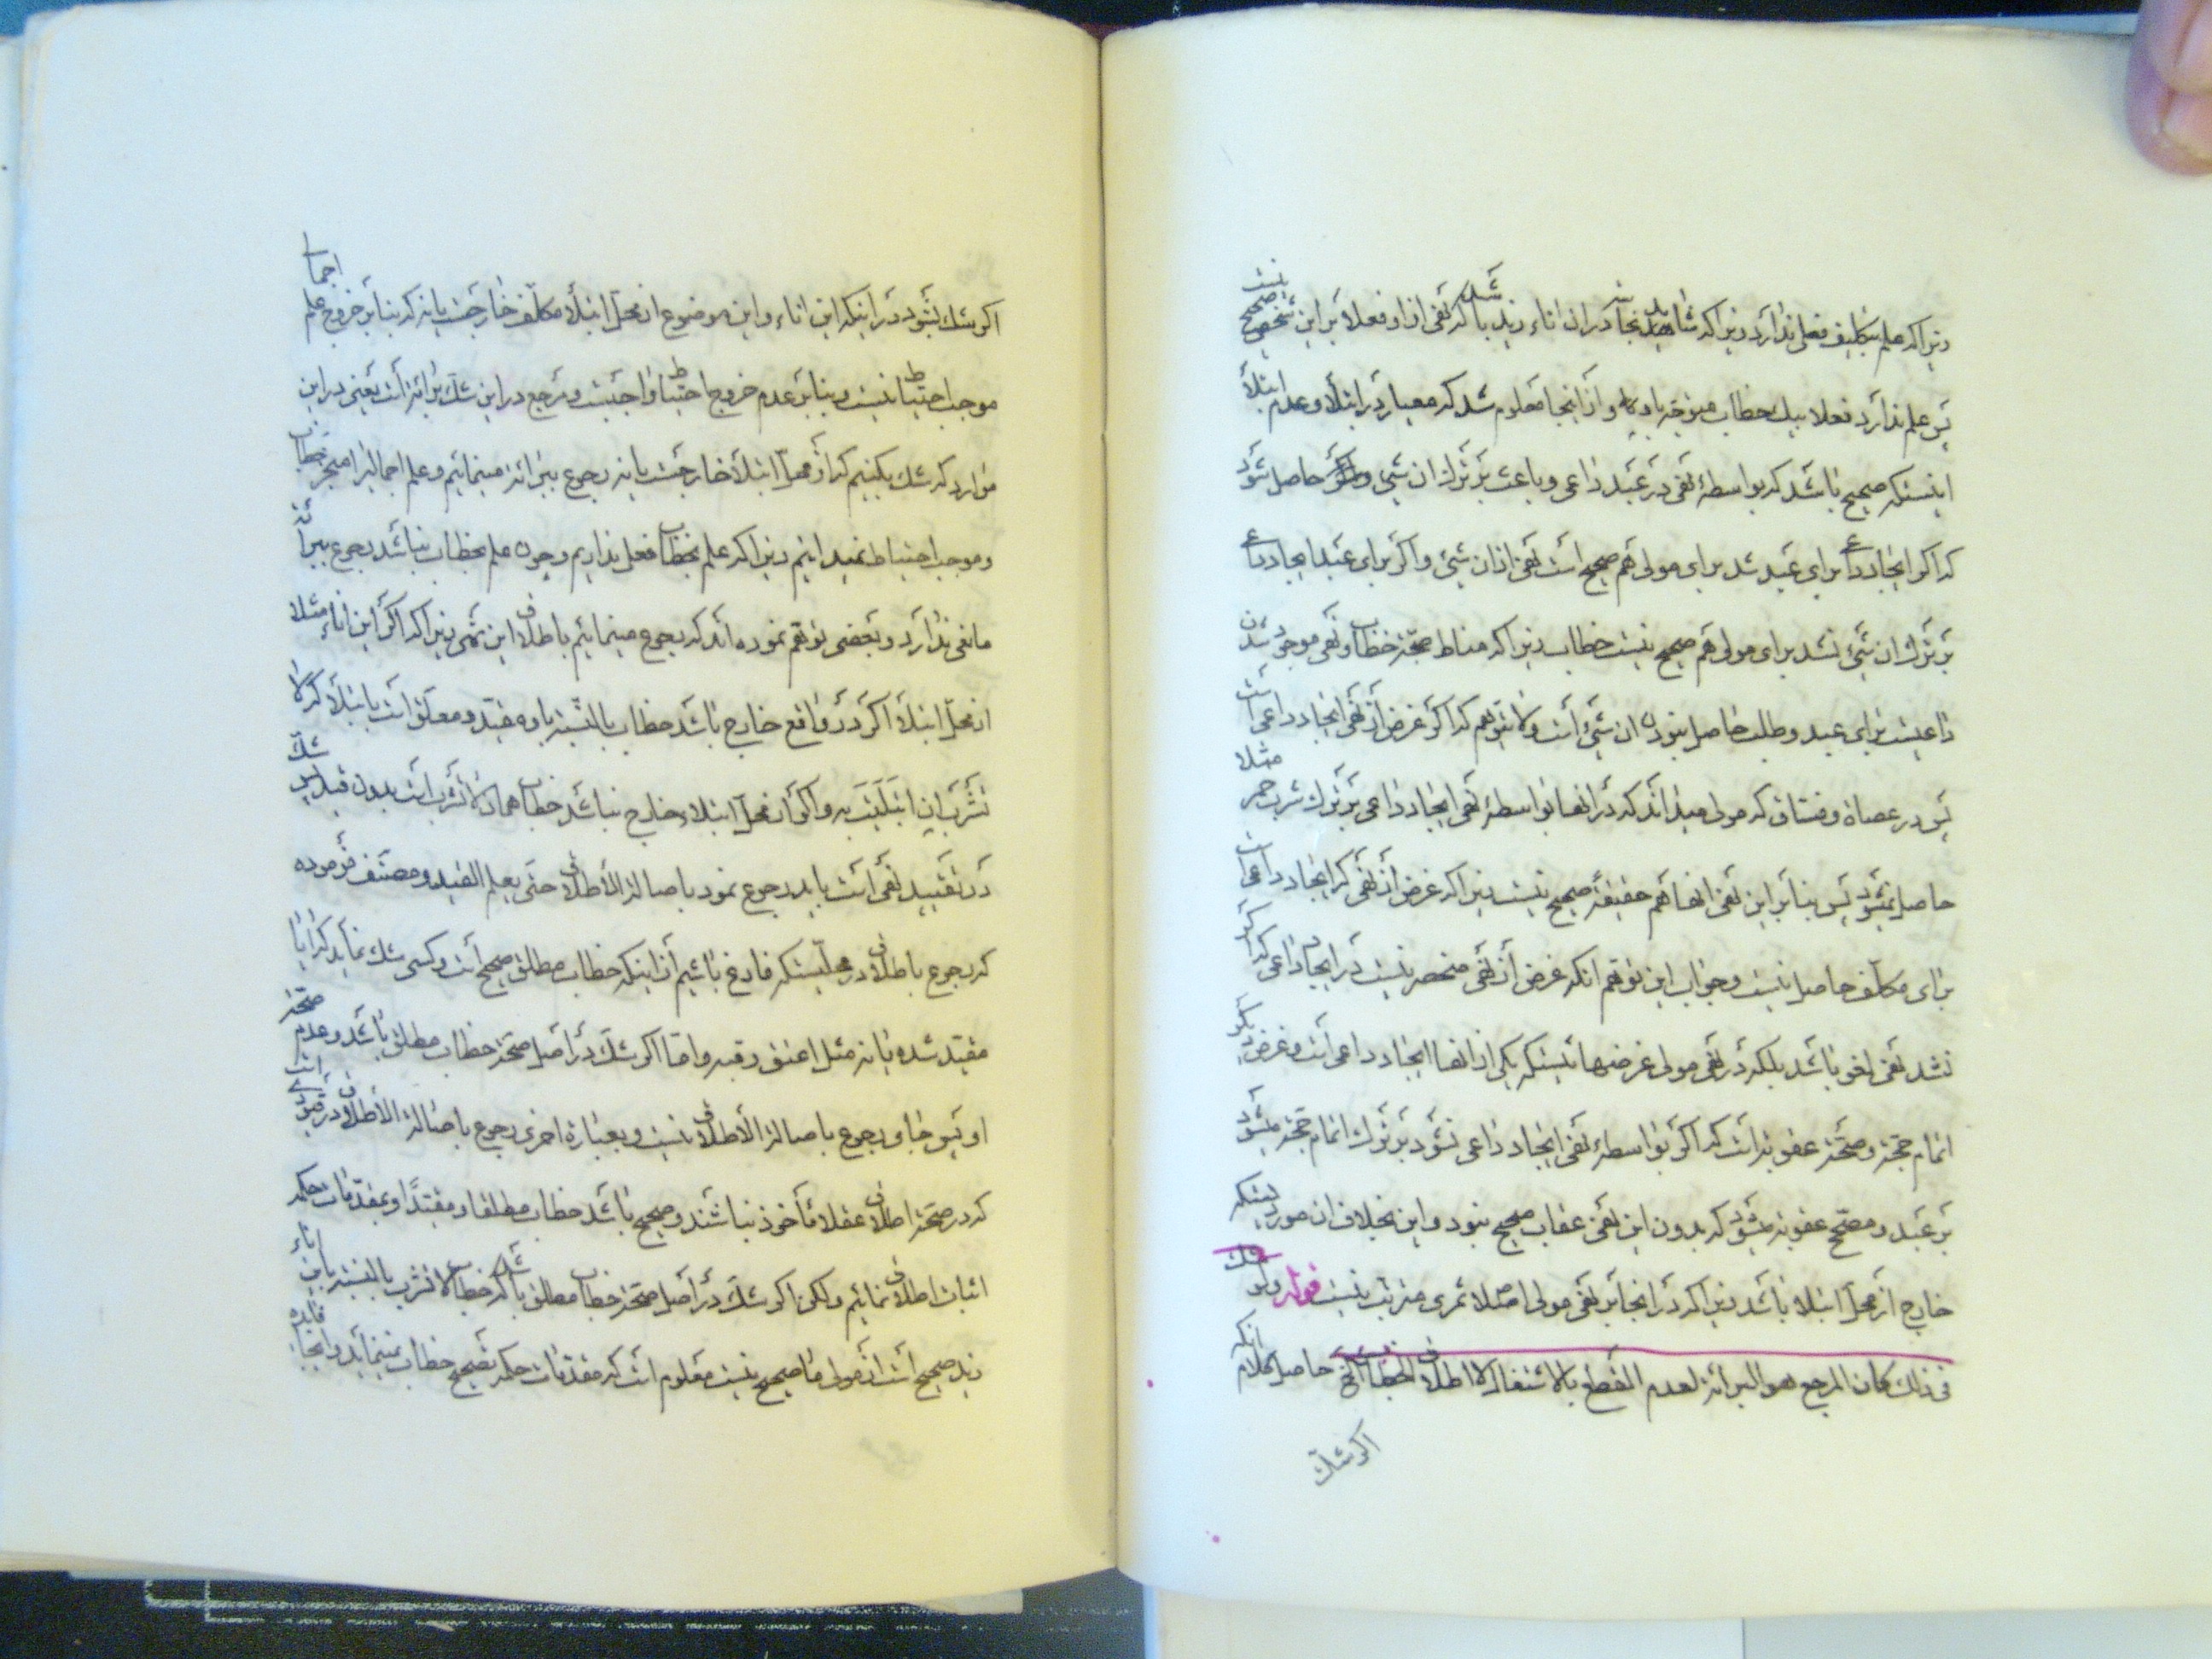 زیرا که علم بتکلیف فعلی ندارد زیرا که شاید نجاسة در ان اناء زید باشد که نهی از او فعلا بر این شخص صحیح نیست
پس علم ندارد فعلا بیک خطاب متوجه باو و از اینجا معلوم شد که معیار در ابتلاء و عدم ابتلاء
اینستکه صحیح باشد که بواسطهٔ نهی در عبد داعی و باعث بر ترک ان شیء حاصل شود
که اکر ایجاد داعی برای عبد شد برای مولی هم صحیح است نهی از ان شیئ و اکر برای عبد ایجاد داعی
بر ترک ان شیئ نشد برای مولی هم صحیح نیست خطاب زیرا که مناط صحّة خطاب و نهی موجود شدن
داعیست برای عبد و طلب حاصل نبودن ان شیئ است ولا یتوهم که اکر غرض از نهی ایجاد داعی است
پس در عصاة و فساق که مولی میداند که در انها بواسطهٔ نهی ایجاد داعی بر ترک شرب خمر مثلا
حاصل نمیشود پس بنا بر این نهی انها هم حقیقةً صحیح نیست زیرا که غرض از نهی که ایجاد داعی است
برای مکلّف حاصل نیست و جواب این توهم انکه غرض از نهی منحصر نیست در ایجاد داعی که اکر
نشد نهی لغو باشد بلکه در نهی مولی غرضها ئیستکه یکی از انها ایجاد داعی است و غرض دیکر
اتمام حجّة و صحّة عقوبة است که اکر بواسطهٔ نهی ایجاد داعی نشود بر ترک اتمام حجّة میشود
بر عبد و مصحّح عقوبة میشود که بدون این نهی عقاب صحیح نبود و این بخلاف ان موردیستکه
خارج از محلّ ابتلا باشد زیرا که در انجا بر نهی مولی اصلا ثمری مترتب نیست قوله ولو شک
فی ذلک کان المرجع هو البرائة لعدم القطع بالاشتغال لا اطلاق الخطاب الخ حاصل کلام انکه
اکر شکّ
اکر شک بشود در اینکه این اناء و این موضوع از محلّ ابتلاء مکلّف خارجست یا نه که بنا بر خروج علم اجمالی
موجب احتیاط نیست و بنا بر عدم خروج احتیاط واجبست و مرجع در این شکّ برائة است یعنی در این
موارد که شک بکنیم که از محلّ ابتلاء خارجست یا نه رجوع ببرائة مینمائیم و علم اجمالی را منجّز خطاب
و موجب احتیاط نمیدانیم زیرا که علم بخطاب فعلی نداریم و چون علم بخطاب نباشد رجوع ببرائة
مانعی ندارد و بعضی توهم نموده اند که رجوع مینمائیم باطلاق این نهی زیرا که اکر این اناء مثلا
از محلّ ابتلاء اکر در واقع خارج باشد خطاب بالنّسبة باو مقیّد و معلّق است بابتلاء که لا
تشرب ان ابتلیت به و اکر از محلّ ابتلاء خارج نباشد خطاب همان لا تشرب است بدون قید پس شکّ
در تقیید نهی است باید رجوع نمود باصالة الأطلاق حتی یعلم القید و مصنّف فرموده
که رجوع باطلاق در محلّیستکه فارغ باشیم از اینکه خطاب مطلق صحیح است و کسی شک نماید که ایا
مقیّد شده یا نه مثل اعتق رقبه و امّا اکر شکّ در اصل صحّة خطاب مطلق باشد و عدم صحّة
او پس جای رجوع باصالة الأطلاق نیست و بعبارة اخری رجوع باصالة الأطلاق در قیودی است
که در صحّة اطلاق عقلا مأخوذ نباشند و صحیح باشد خطاب مطلقا و مقیّدًا و بمقدّمات حکمه
اثبات اطلاق نمائیم ولکن اکر شکّ در اصل صحّة خطاب مطلق باشد که خطاب لا تشرب بالنسبة باین اناء
زید صحیح است از مولی یا صحیح نیست معلوم است که مقدّمات حکمه تصحیح خطاب نمینماید و اینجا فایده